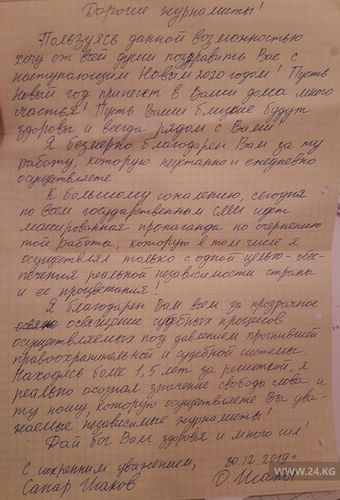 Дорогие журналисты!
Пользуясь данной возможностью
хочу от всей души поздравить Вас с
наступающим Новым 2020 годом! Пусть
Новый год принесет в Ваши дома много
счастья! Пусть Ваши близкие будут
здоровы и всегда рядом с Вами!
Я безмерно благодарен Вам за ту
работу, которую неустанно и ежедневно
осуществляете.
К большому сожалению, сегодня
по всем государственным СМИ идет
массированная пропаганда по очернению
той работы, которую в том числе я
осуществлял только с одной целью - обес-
печения реальной независимости страны
и ее процветания!
Я благодарен Вам всем за прозрачное
освещение судебных процессов
осуществляемых под давлением прогнившей
правоохранительной и судебной системы.
Находясь более 1,5 лет за решеткой, я
реально осознал значение свободы слова и
ту ношу, которую осуществляете Вы ува-
жаемые независимые журналисты!
Дай бог Вам здоровья и много сил!
С искренним уважением,
30.12.2019г.
Сапар Исаков
WWW.24.KG